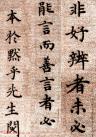 非好辨者未必
能言而善言者必
本於黙乎先生闕